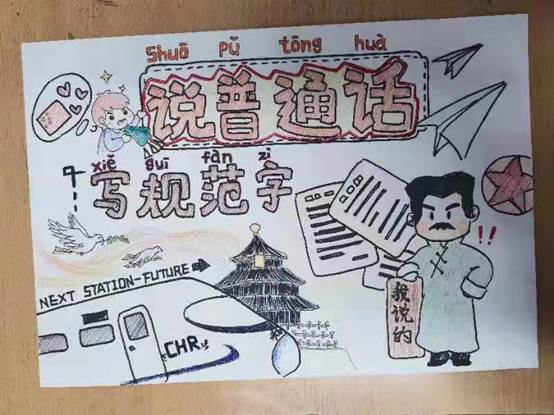 Shuō pǔ tōng huà
说普通话
xiě guī fàn zì
写规范字
NEXT STATION-FUTURE
CHR
我说的
!!